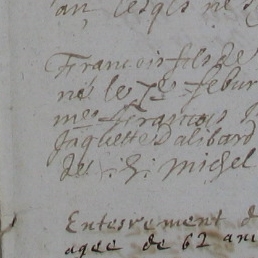 an, lesqls ne s
François fils de
né le xe febur
mes françois
Jaquette dalibard
de s. michel
Entesrement d
agee de 62 ans